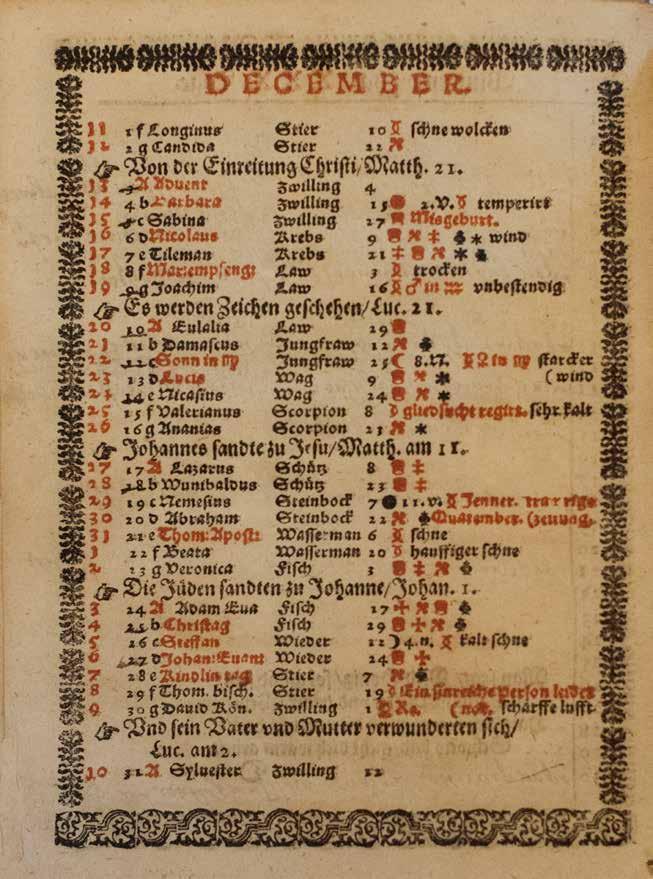 DECEMBER.
11 1 f Longinus Stier 10 schne wolcken
12 2 g Candida Stier 22
Von der Einreitung Christi/Matth. 21.
13 3 A Advent Zwilling 4
14 4 b Barbara Zwilling 15 2. V. temperirt
15 5 c Sabina Zwilling 27 Misgeburt.
16 6 d Nicolaus Krebs 9 wind
17 7 e Tileman Krebs 21
18 8 f Mar: empfeng: Law 3 trocken
19 9 g Joachim Law 16 in vnbestendig
Es werden Zeichen geschehen/Luc. 21.
20 10 A Eulalia Law 29
21 11 b Damascus Jungfraw 12
22 12 c Sonn in Jungfraw 25 8. N. in starcker
23 13 d Lucia Wag 9 (wind
24 14 e Nicasius Wag 24
25 15 f Valerianus Scorpion 8 gliedsucht regirt. sehr kalt
26 16 g Ananias Scorpion 23
Johannes sandte zu Jesu/Matth. am 11.
27 17 A Lazarus Schütz 8
28 18 b Wunibaldus Schütz 23
29 19 c Nemesius Steinbock 7 11. v. Jenner.
30 20 d Abraham Steinbock 22 Quatember.
31 21 e Thom: Apost: Wasserman 6 schne
1 22 f Beata Wasserman 20 hauffiger schne
2 23 g Veronica Fisch 3
Die Jüden sandten zu Johanne/Johan. 1.
3 24 A Adam Eua Fisch 17
4 25 b Christag Fisch 29
5 26 c Steffan Wieder 12 4. n. kalt schne
6 27 d Johan: Euant Wieder 24
7 28 e Kindlin tag Stier 7
8 29 f Thom. bisch. Stier 19 Ein person leidet
9 30 g David Kön. Zwilling 1 (not. scharffe lufft
Vnd sein Vater vnd Mutter verwunderten sich/
Luc. am 2.
10 31 A Syluester Zwilling 12